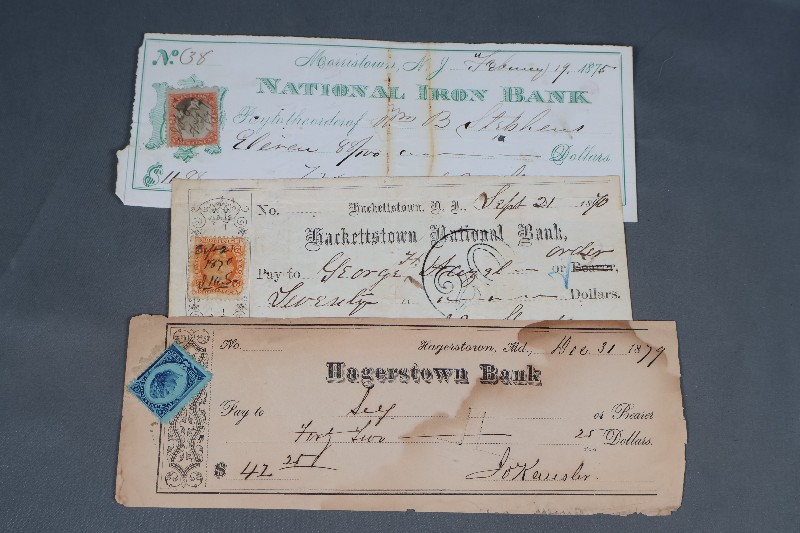 No. 138
Morristown, N.J. 19, 1875
NATIONAL IRON BANK
Pay to the order of Wm B Stephens
Eleven 88/100 Dollars
$11.88
No. Hackettstown, N. J., Sept 21 1870
Hackettstown National Bank,
Pay to George or Bearer, order
Seventy Dollars.
No. Hagerstown, Md., Dec. 31 1879
Hagerstown Bank
Pay to Self or Bearer
Forty Two 25 Dollars.
$ 42 25